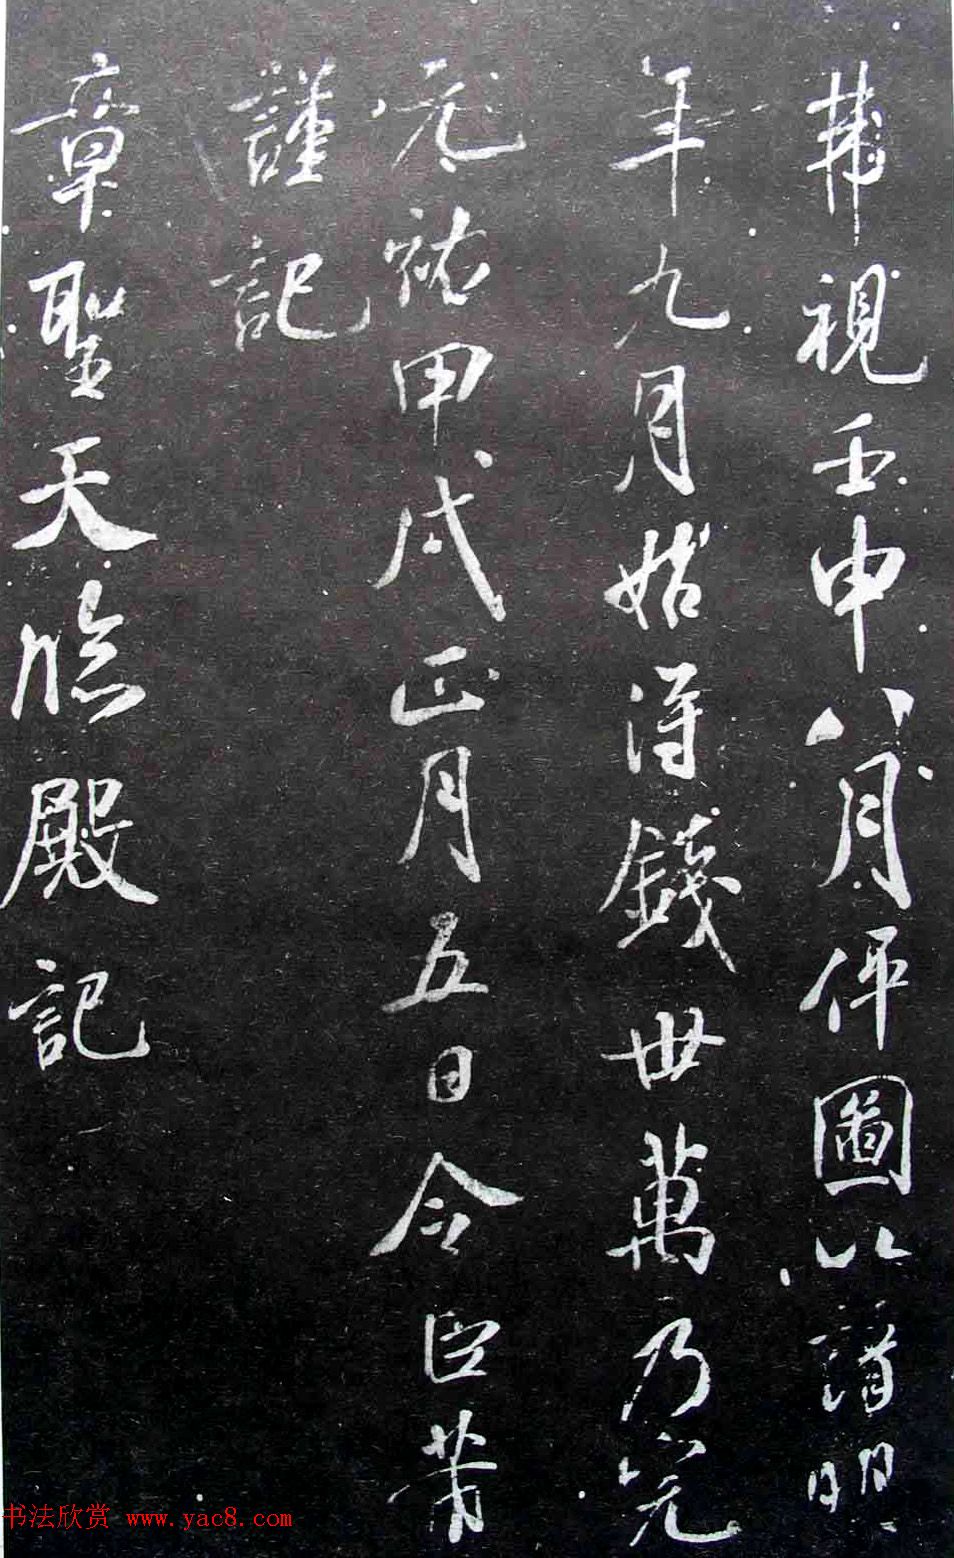 芾視壬申八月伻圖以請明
年九月始得錢卅萬乃完
元祐甲戌正月五日令臣芾
謹記
章聖天臨殿記
书法欣赏 www.yac8.com